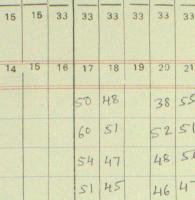 15 15 33 33 33 33 33 33
14 15 16 17 18 19 20 21
50 48 38 55
60 51 52 51
54 47 48
51 45 46